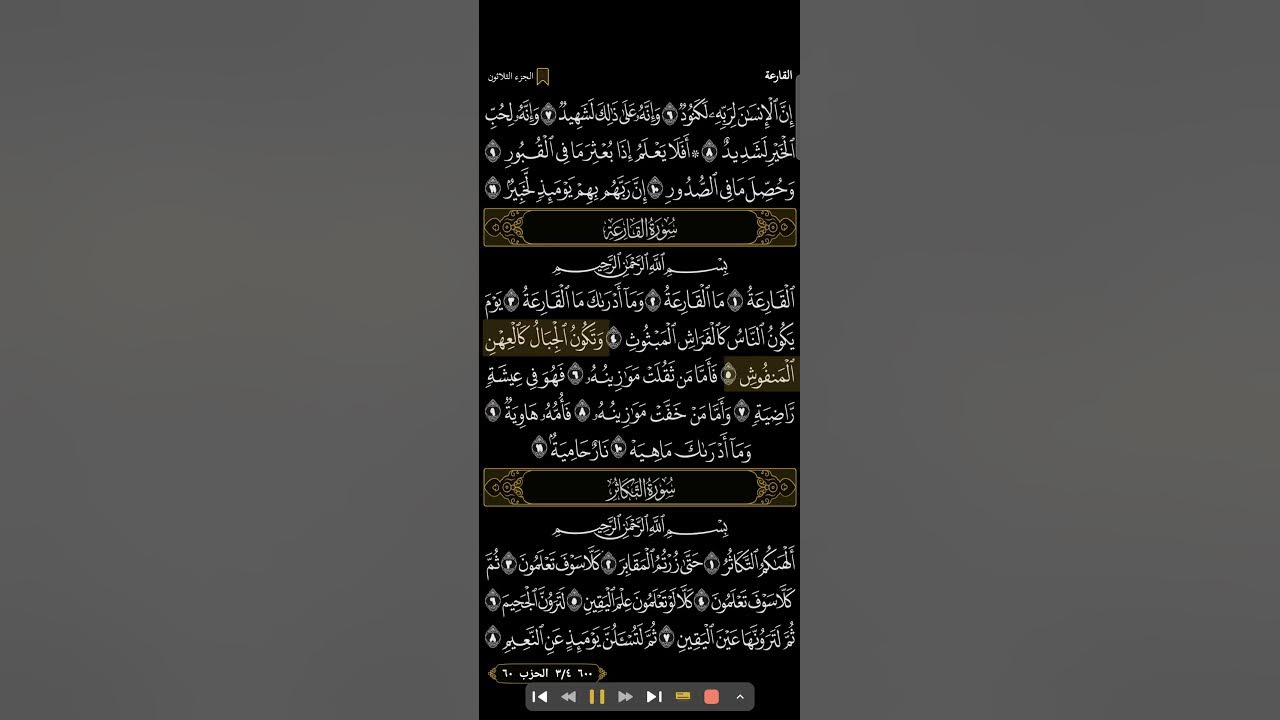 القارعة
الجزء الثلاثون
إِنَّ ٱلْإِنسَٰنَ لِرَبِّهِۦ لَكَنُودٌ ٦ وَإِنَّهُۥ عَلَىٰ ذَٰلِكَ لَشَهِيدٌ ٧ وَإِنَّهُۥ لِحُبِّ
ٱلْخَيْرِ لَشَدِيدٌ ٨ ۞ أَفَلَا يَعْلَمُ إِذَا بُعْثِرَ مَا فِى ٱلْقُبُورِ ٩
وَحُصِّلَ مَا فِى ٱلصُّدُورِ ١٠ إِنَّ رَبَّهُم بِهِمْ يَوْمَئِذٍ لَّخَبِيرٌۢ ١١
سُورَةُ القَارِعَةِ
بِسْمِ ٱللَّهِ ٱلرَّحْمَٰنِ ٱلرَّحِيمِ
ٱلْقَارِعَةُ ١ مَا ٱلْقَارِعَةُ ٢ وَمَآ أَدْرَىٰكَ مَا ٱلْقَارِعَةُ ٣ يَوْمَ
يَكُونُ ٱلنَّاسُ كَٱلْفَرَاشِ ٱلْمَبْثُوثِ ٤ وَتَكُونُ ٱلْجِبَالُ كَٱلْعِهْنِ
ٱلْمَنفُوشِ ٥ فَأَمَّا مَن ثَقُلَتْ مَوَٰزِينُهُۥ ٦ فَهُوَ فِى عِيشَةٍ
رَّاضِيَةٍ ٧ وَأَمَّا مَنْ خَفَّتْ مَوَٰزِينُهُۥ ٨ فَأُمُّهُۥ هَاوِيَةٌ ٩
وَمَآ أَدْرَىٰكَ مَا هِيَهْ ١٠ نَارٌ حَامِيَةٌۢ ١١
سُورَةُ التَّكَاثُرِ
بِسْمِ ٱللَّهِ ٱلرَّحْمَٰنِ ٱلرَّحِيمِ
أَلْهَىٰكُمُ ٱلتَّكَاثُرُ ١ حَتَّىٰ زُرْتُمُ ٱلْمَقَابِرَ ٢ كَلَّا سَوْفَ تَعْلَمُونَ ٣ ثُمَّ
كَلَّا سَوْفَ تَعْلَمُونَ ٤ كَلَّا لَوْ تَعْلَمُونَ عِلْمَ ٱلْيَقِينِ ٥ لَتَرَوُنَّ ٱلْجَحِيمَ ٦
ثُمَّ لَتَرَوُنَّهَا عَيْنَ ٱلْيَقِينِ ٧ ثُمَّ لَتُسْـَٔلُنَّ يَوْمَئِذٍ عَنِ ٱلنَّعِيمِ ٨
٦٠٠ ٣/٤ الحزب ٦٠